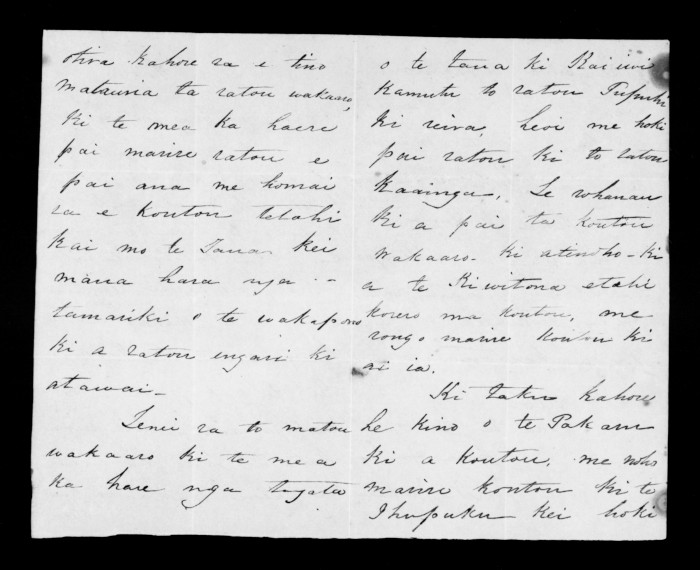 otira kahore ra e tino
matauria ta ratou wakaaro,
ki te mea ka haere
pai marire ratou e
pai ana me homai
ra e koutou tetahi
kai mo te Taua. kei
mana hara nga --
tamariki o te wakapono
ki a ratou engari ki
atawai-
Tenei ra to matou
wakaaro ki te mea
ka hare nga tagata
o te taua ki Kai iwi
Kamutu to ratou Pupuhi
ki reira, heoi me hoki
pai ratou ki to ratou
Kaainga. Te whanau
ki a pai ta koutou
wakaaro. ki
a te Kiwitona etahi
korero ma koutou, me
rongo marire koutou ki
ai ia.
Ki taku kahore
he kino o te Pakaru
ki a Koutou. me noho
marire koutou ki te
Ihupuku kei hoki